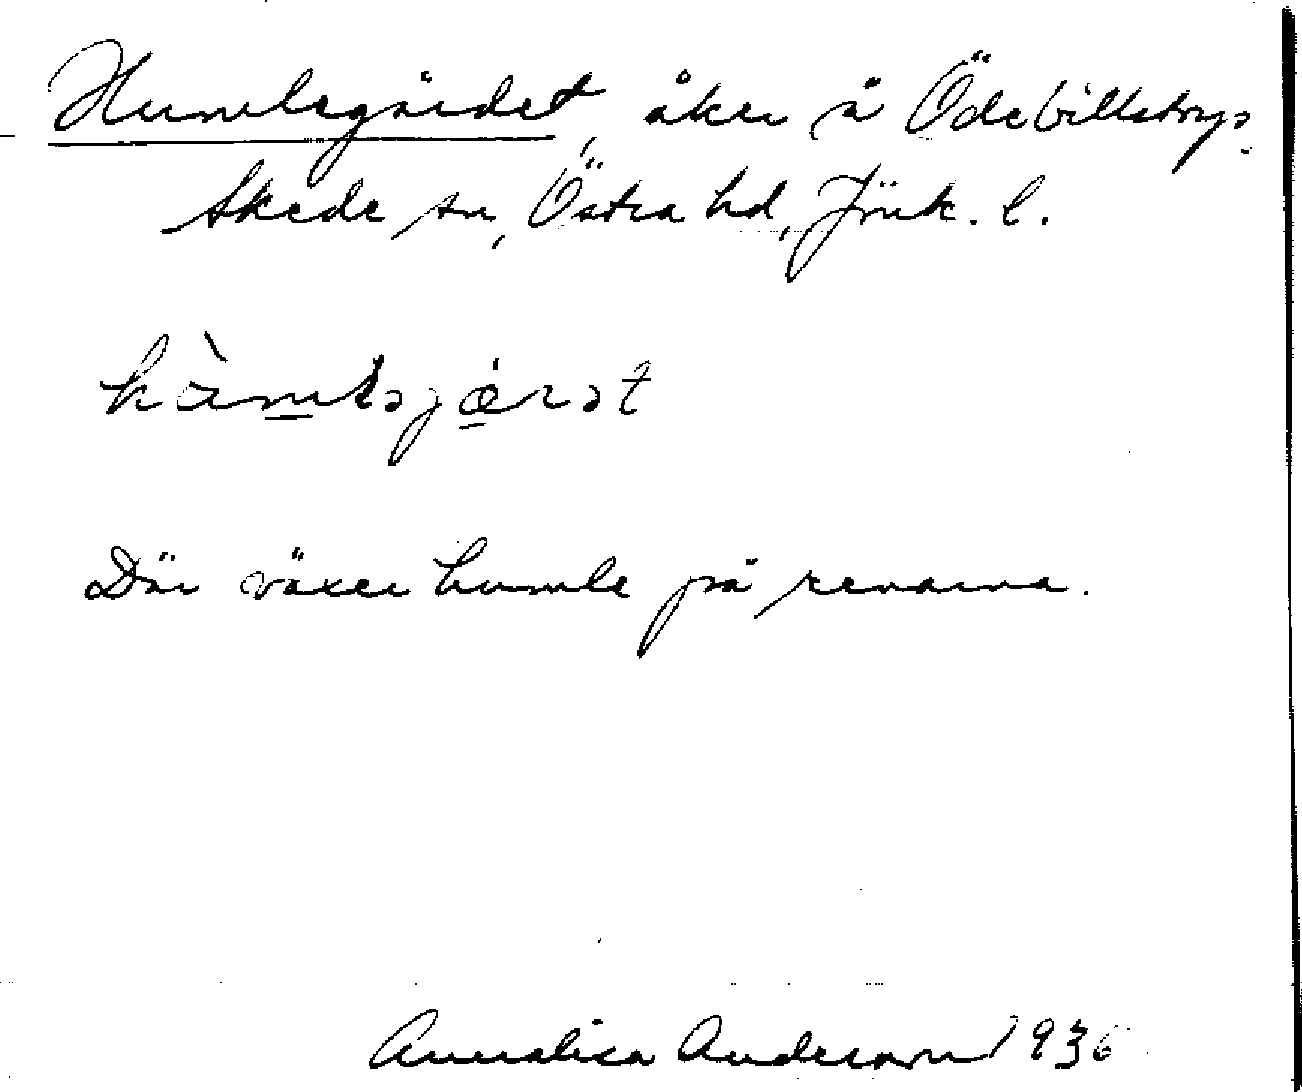 Humlegärdet, åker å Ödebillstorp,
Skede sn, Östra hd, Jönk. l.
Där växer humle på renarna.
Annalisa Anderson 1936